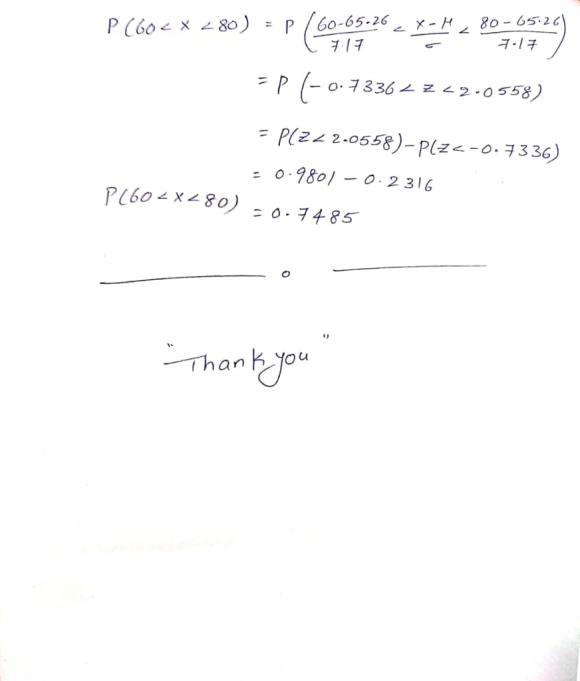 P(60 < X < 80) = P (60-65.26/7.17 < X-M/σ < 80-65.26/7.17)
= P (-0.7336 < Z < 2.0558)
= P(Z < 2.0558) - P(Z < -0.7336)
= 0.9801 - 0.2316
P(60 < X < 80) = 0.7485
"Thank you"